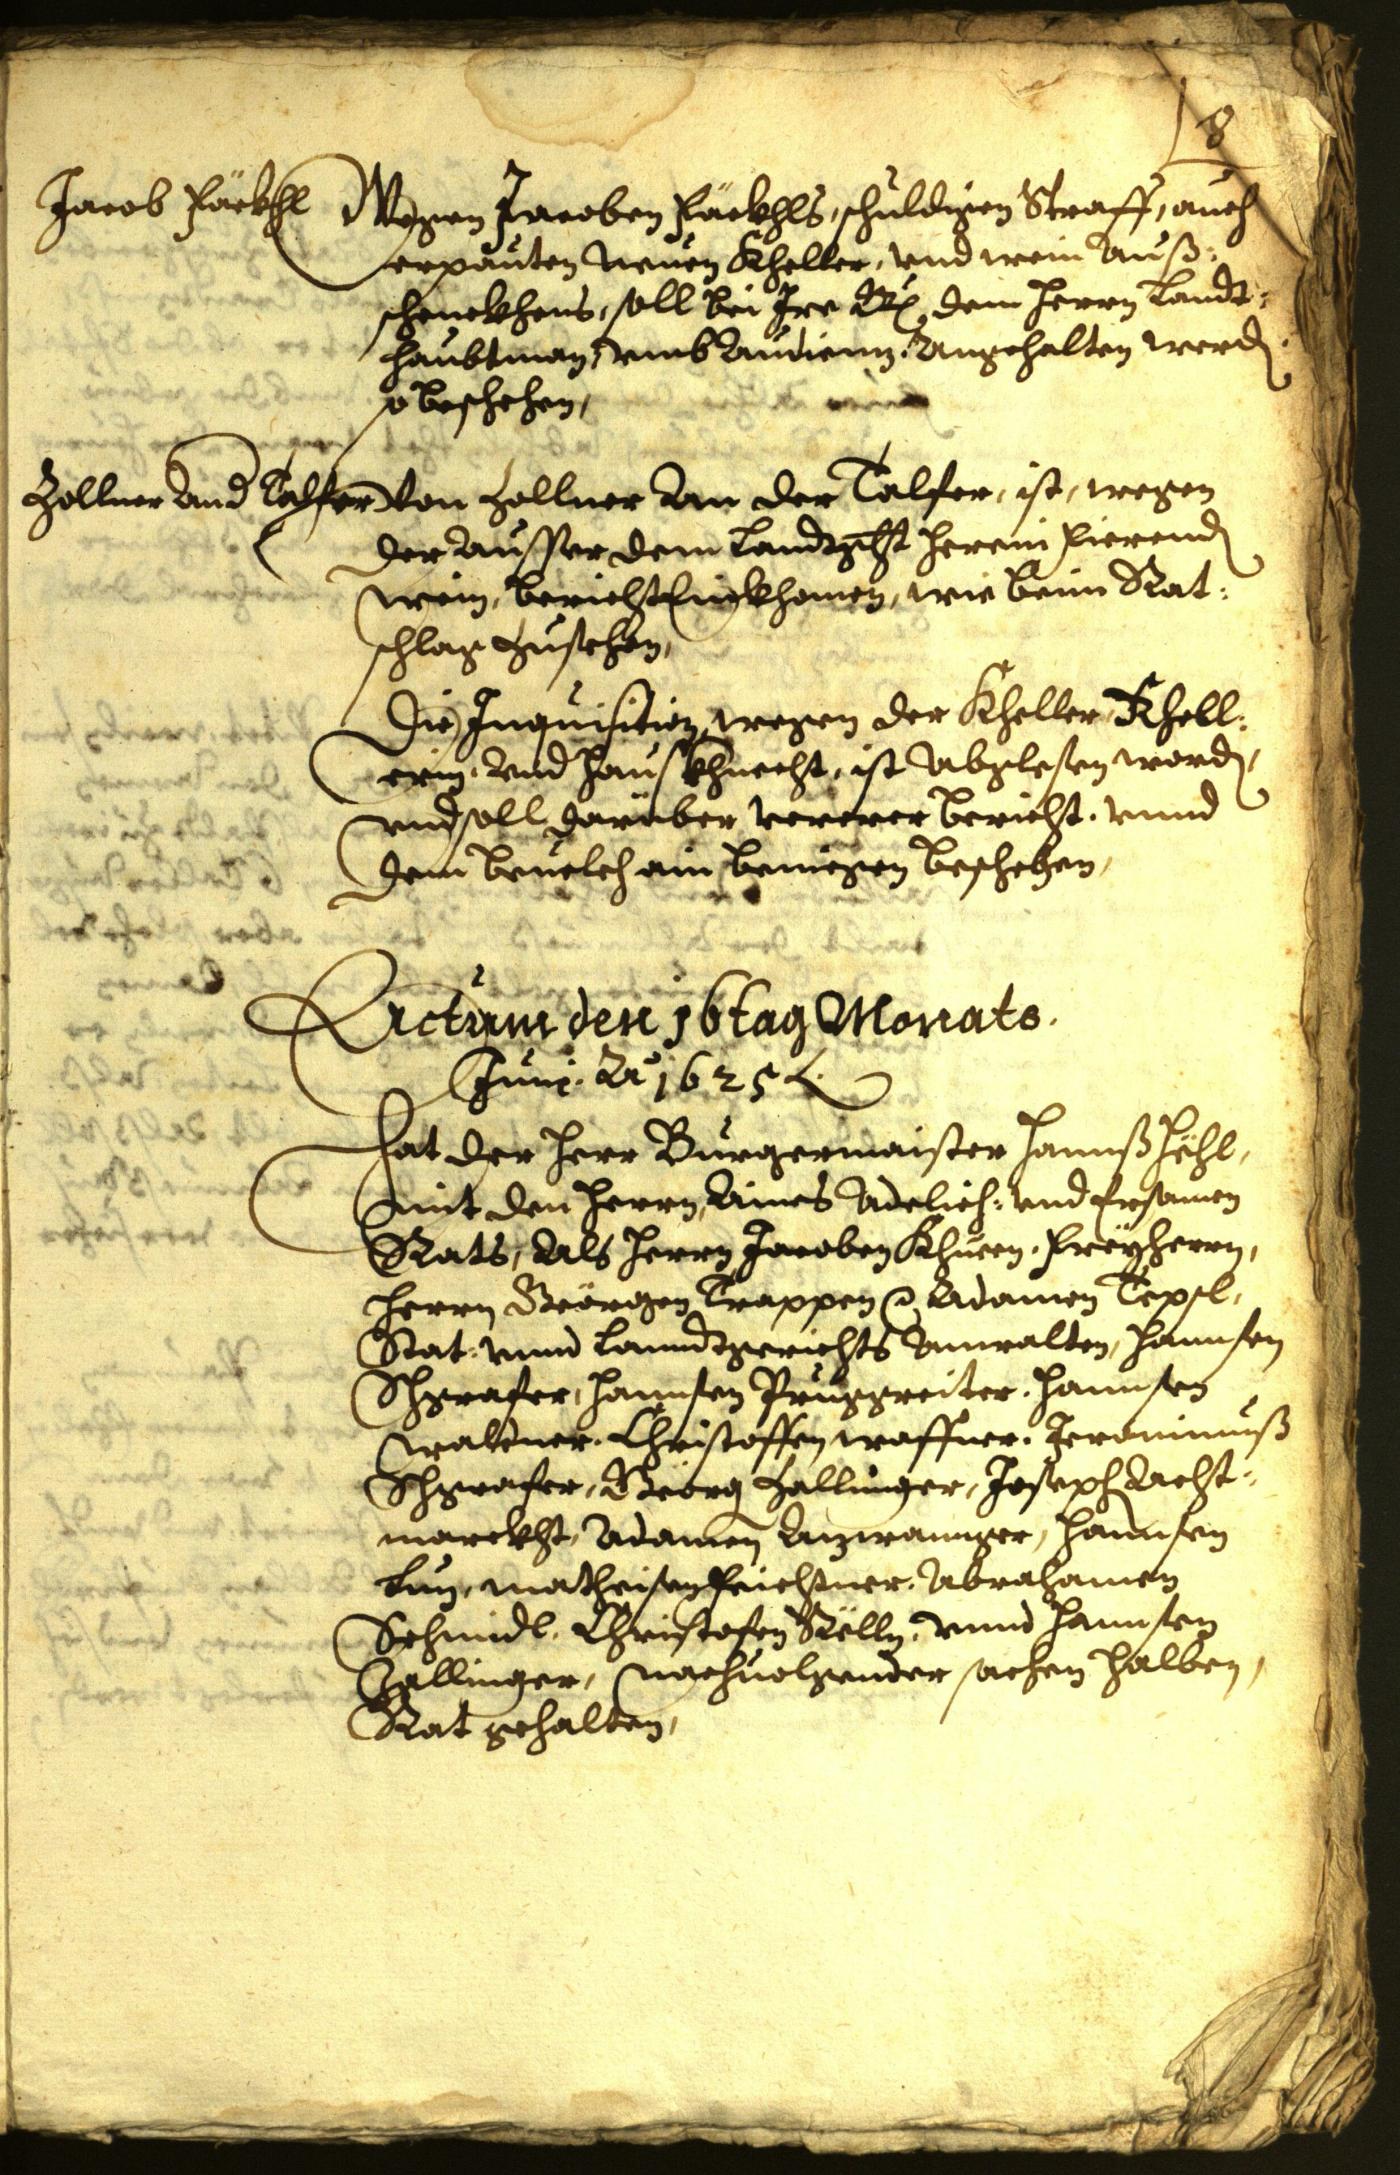 8
Jacob Päckhl
Wegen Jacoben Päckhls, schuldigen Straff, auch
erpauten neuen Kheller, vnd wein Auß:
schenckhens, soll bei Irr dem Herrn Landt:
haubtman, vmb Audienz Angehalten werd
so beschehen,
Zollner Annd Talfer
Von Zollner An der Talfer, ist, wegen
der Ausser dem Landtgericht herein fierend
wein, bericht Einkhomen, wie beim Rat:
schlag Zusehen,
Die Inquisition wegen der Kheller Khell:
erin, Vnd Hausskhnecht, ist Abglesen word,
vnd soll darüber vererer bericht, vnnd
dem beuelch ain beniegen beschehen,
Actum den 16 tag Monats
Junij. Ao 1625
Hat der Herr Burgermaister Hannß Hëhl,
mit den Herrn, Aines Adelich: vnd Ersamen
Rats, Als Herrn Jacoben Khuen, Freyherrn,
Herrn Geörgen Trappen Adamen
Stat: vnnd Lanndtgerichts Anwalten, Hannsen
Schgrafer, Hannsen Pruggreiter, Hannsen
waltner, Christoffen waffner, Jeronimuß
Schgrafer, Geörg Zallinger, Joseph Acht:
marckht, Adamen Anzwannger, Hannsen
Lun, matheisen Feichtner, Abrahamen
Schmidl, Christofen Rëlln, vnnd Hannsen
Zallinger, nachuolgender sachen halben,
Rat gehalten,